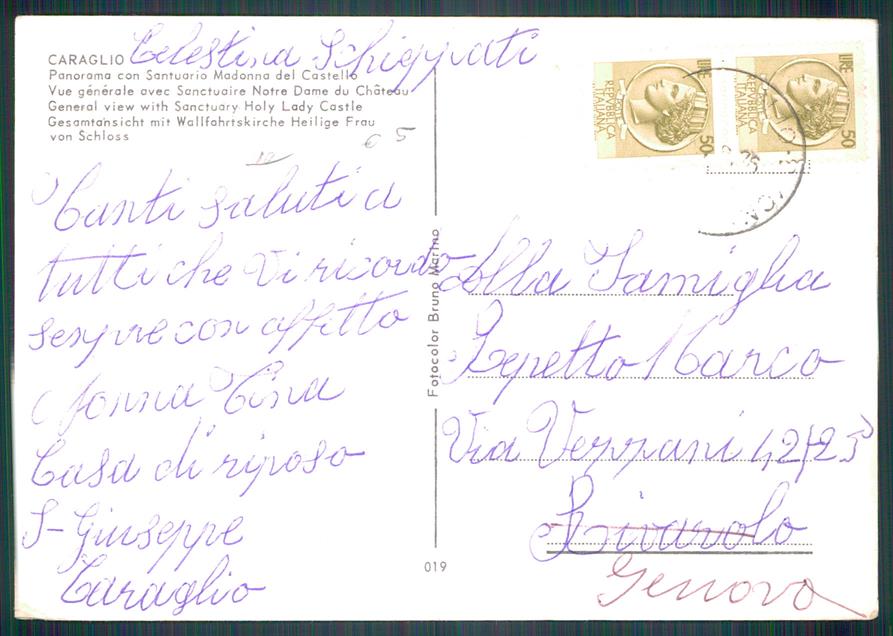 CARAGLIO Celestina Schieppati
Panorama con Santuario Madonna del Castello
Vue générale avec Sanctuaire Notre Dame du Château
General view with Sanctuary Holy Lady Castle
Gesamtansicht mit Wallfahrtskirche Heilige Frau
von Schloss
€ 5
Tanti saluti a
tutti che Vi ricordo
sempre con affetto
Nonna Tina
Casa di riposo
S-Giuseppe
Caraglio
Fotocolor Bruno Marino
019
LIRE 50
REPVBBLICA
ITALIANA
LIRE 50
REPVBBLICA
ITALIANA
Alla Famiglia
Repetto Marco
Via Vezzani 42/23
Rivarolo
Genova